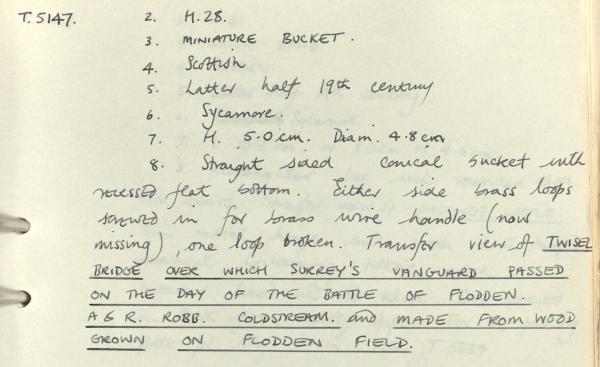 T.5147. 2. H.28.
3. MINIATURE BUCKET.
4. Scottish
5. Latter half 19th century
6. Sycamore.
7. H. 5.0cm. Diam. 4.8cm
8. Straight sided conical bucket with
recessed flat bottom. Either side brass loops
screwed in for brass wire handle (now
missing), one loop broken. Transfer view of TWISEL
BRIDGE OVER WHICH SURREY'S VANGUARD PASSED
ON THE DAY OF THE BATTLE OF FLODDEN.
A & R. ROBB. COLDSTREAM. and MADE FROM WOOD
GROWN ON FLODDEN FIELD.